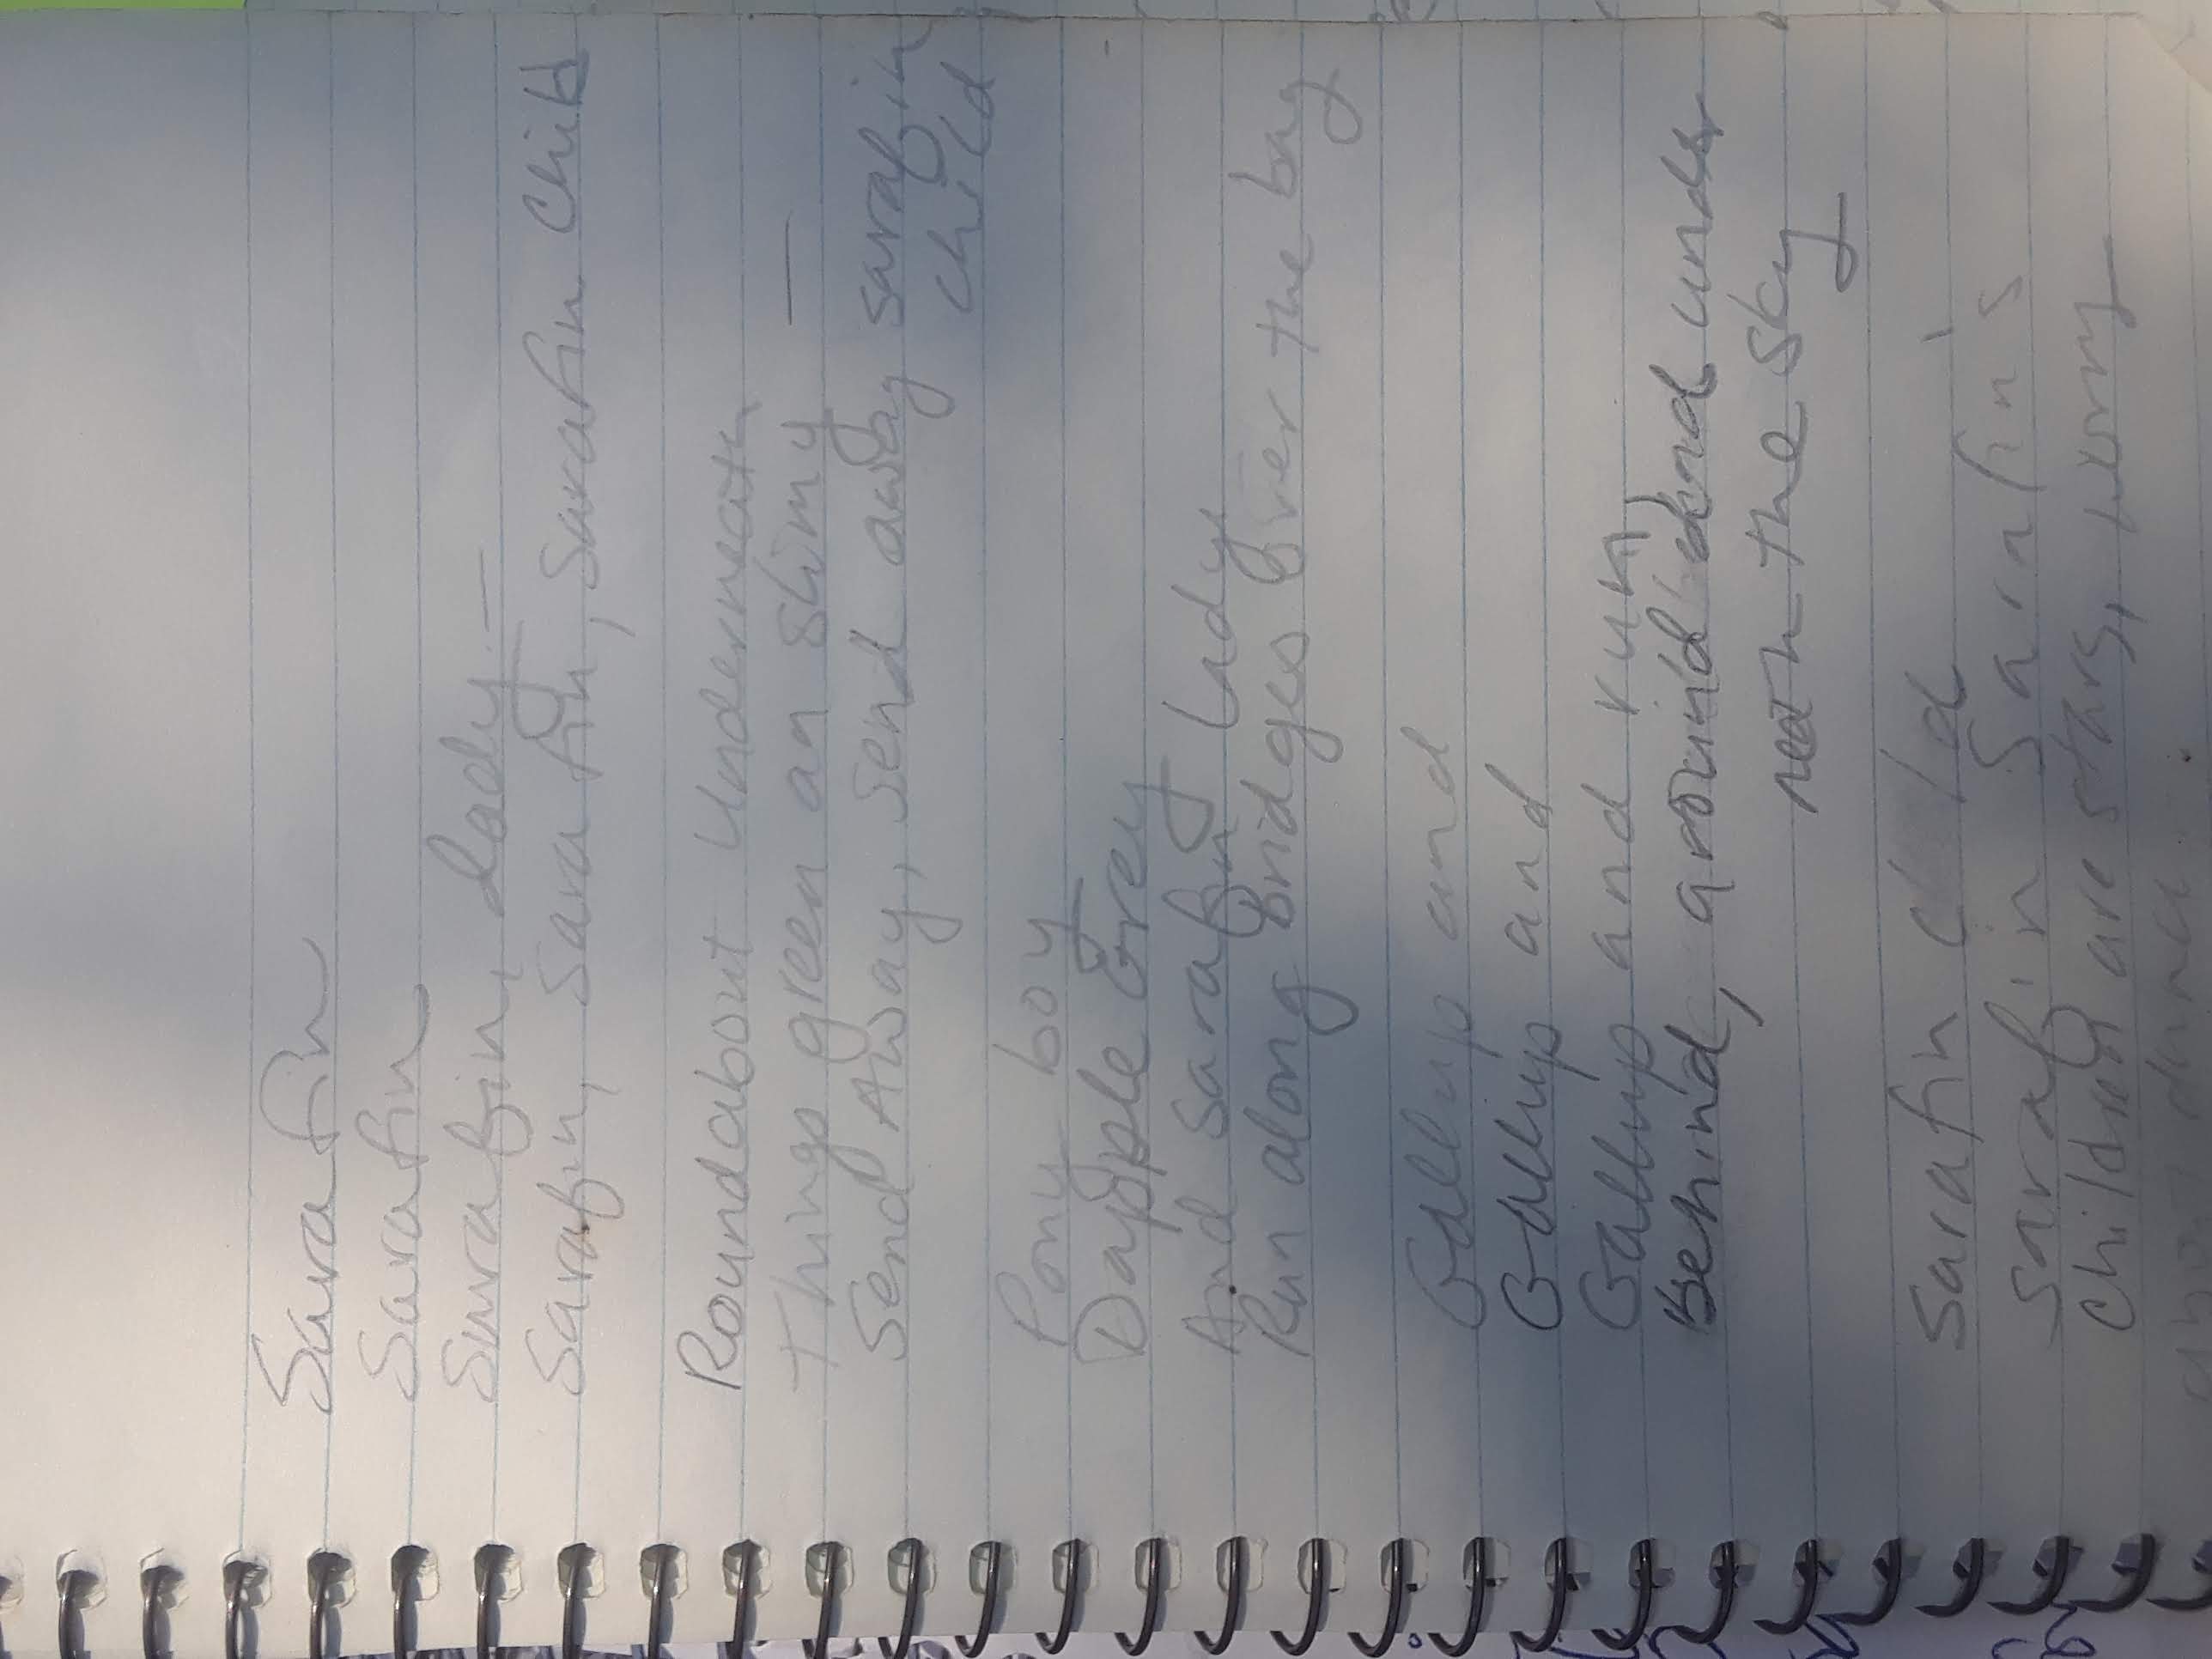 Sarafin
Sarafin
Sarafin, lady —
Sarafin, Sarafin, Sarafin Child
Roundabout Underneath
Things green an slimy —
Send Away, send away sarafin
child
Pony boy
Dapple Grey
And sarafin lady
Run along Bridges over the bay
Gallup and
Gallup and
Gallup and run,
Behind, around and under
neath the sky
Sarafin child
Sarafin Sarafin's
Children are stars,